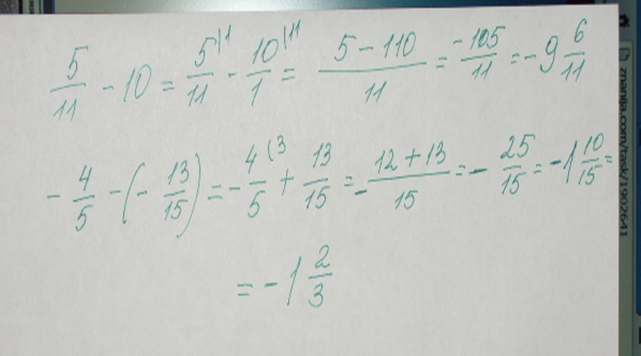 5/11 - 10 = 5\1/11 - 10\11/1 = 5-110/11 = -105/11 = -9 6/11
- 4/5 - (- 13/15) = - 4(3/5 + 13/15 = - 12+13/15 = - 25/15 = -1 10/15 =
= -1 2/3
znanija.com/task/1902641